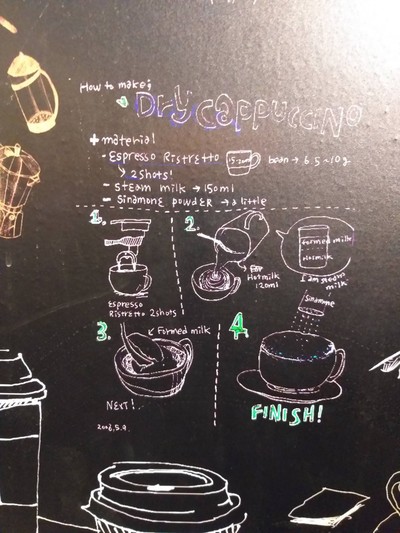 How to make;
a Dry Cappuccino
+ material
- Espresso Ristretto 15~20ml bean → 6.5~10g
↳ 2shots!
- Steam milk → 150ml
- Sinamone powder → a little
1.
Espresso
Ristretto 2shots
2.
Hotmilk
120ml
formed milk
Hotmilk
I am steam
milk
3.
Formed milk
NEXT!
4.
Sinamone
FINISH!